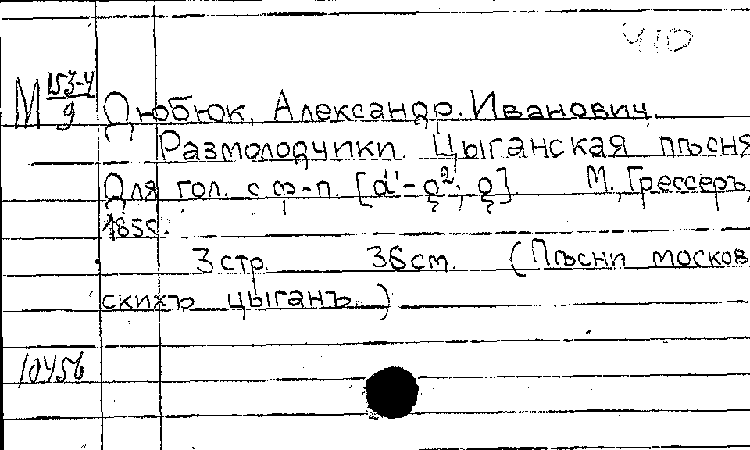 410
М 153-4/9
Дюбюк, Александр Иванович
Размолодчики. Цыганская пѣсня
Для гол. с ф-п.             М., Грессеръ,
3 стр. 36 см. (Пѣсни москов
скихъ цыганъ.)
10456